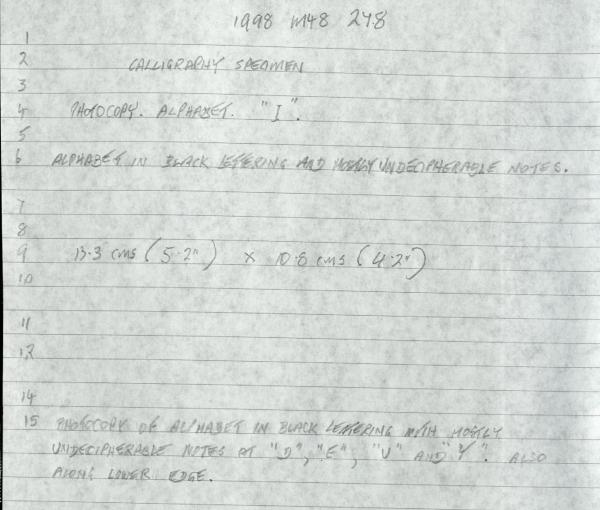 1998 M48 248
1
2 CALLIGRAPHY SPECIMEN
3
4 PHOTOCOPY. ALPHABET. "I".
5
6 ALPHABET IN BLACK LETTERING AND MOSTLY UNDECIPHERABLE NOTES.
7
8
9 13.3 cms (5.2") X 10.8 cms (4.2")
10
11
12
14
15 PHOTOCOPY OF ALPHABET IN BLACK LETTERING WITH MOSTLY
UNDECIPHERABLE NOTES AT "D", "E", "U" AND "Y". ALSO
ALONG LOWER EDGE.